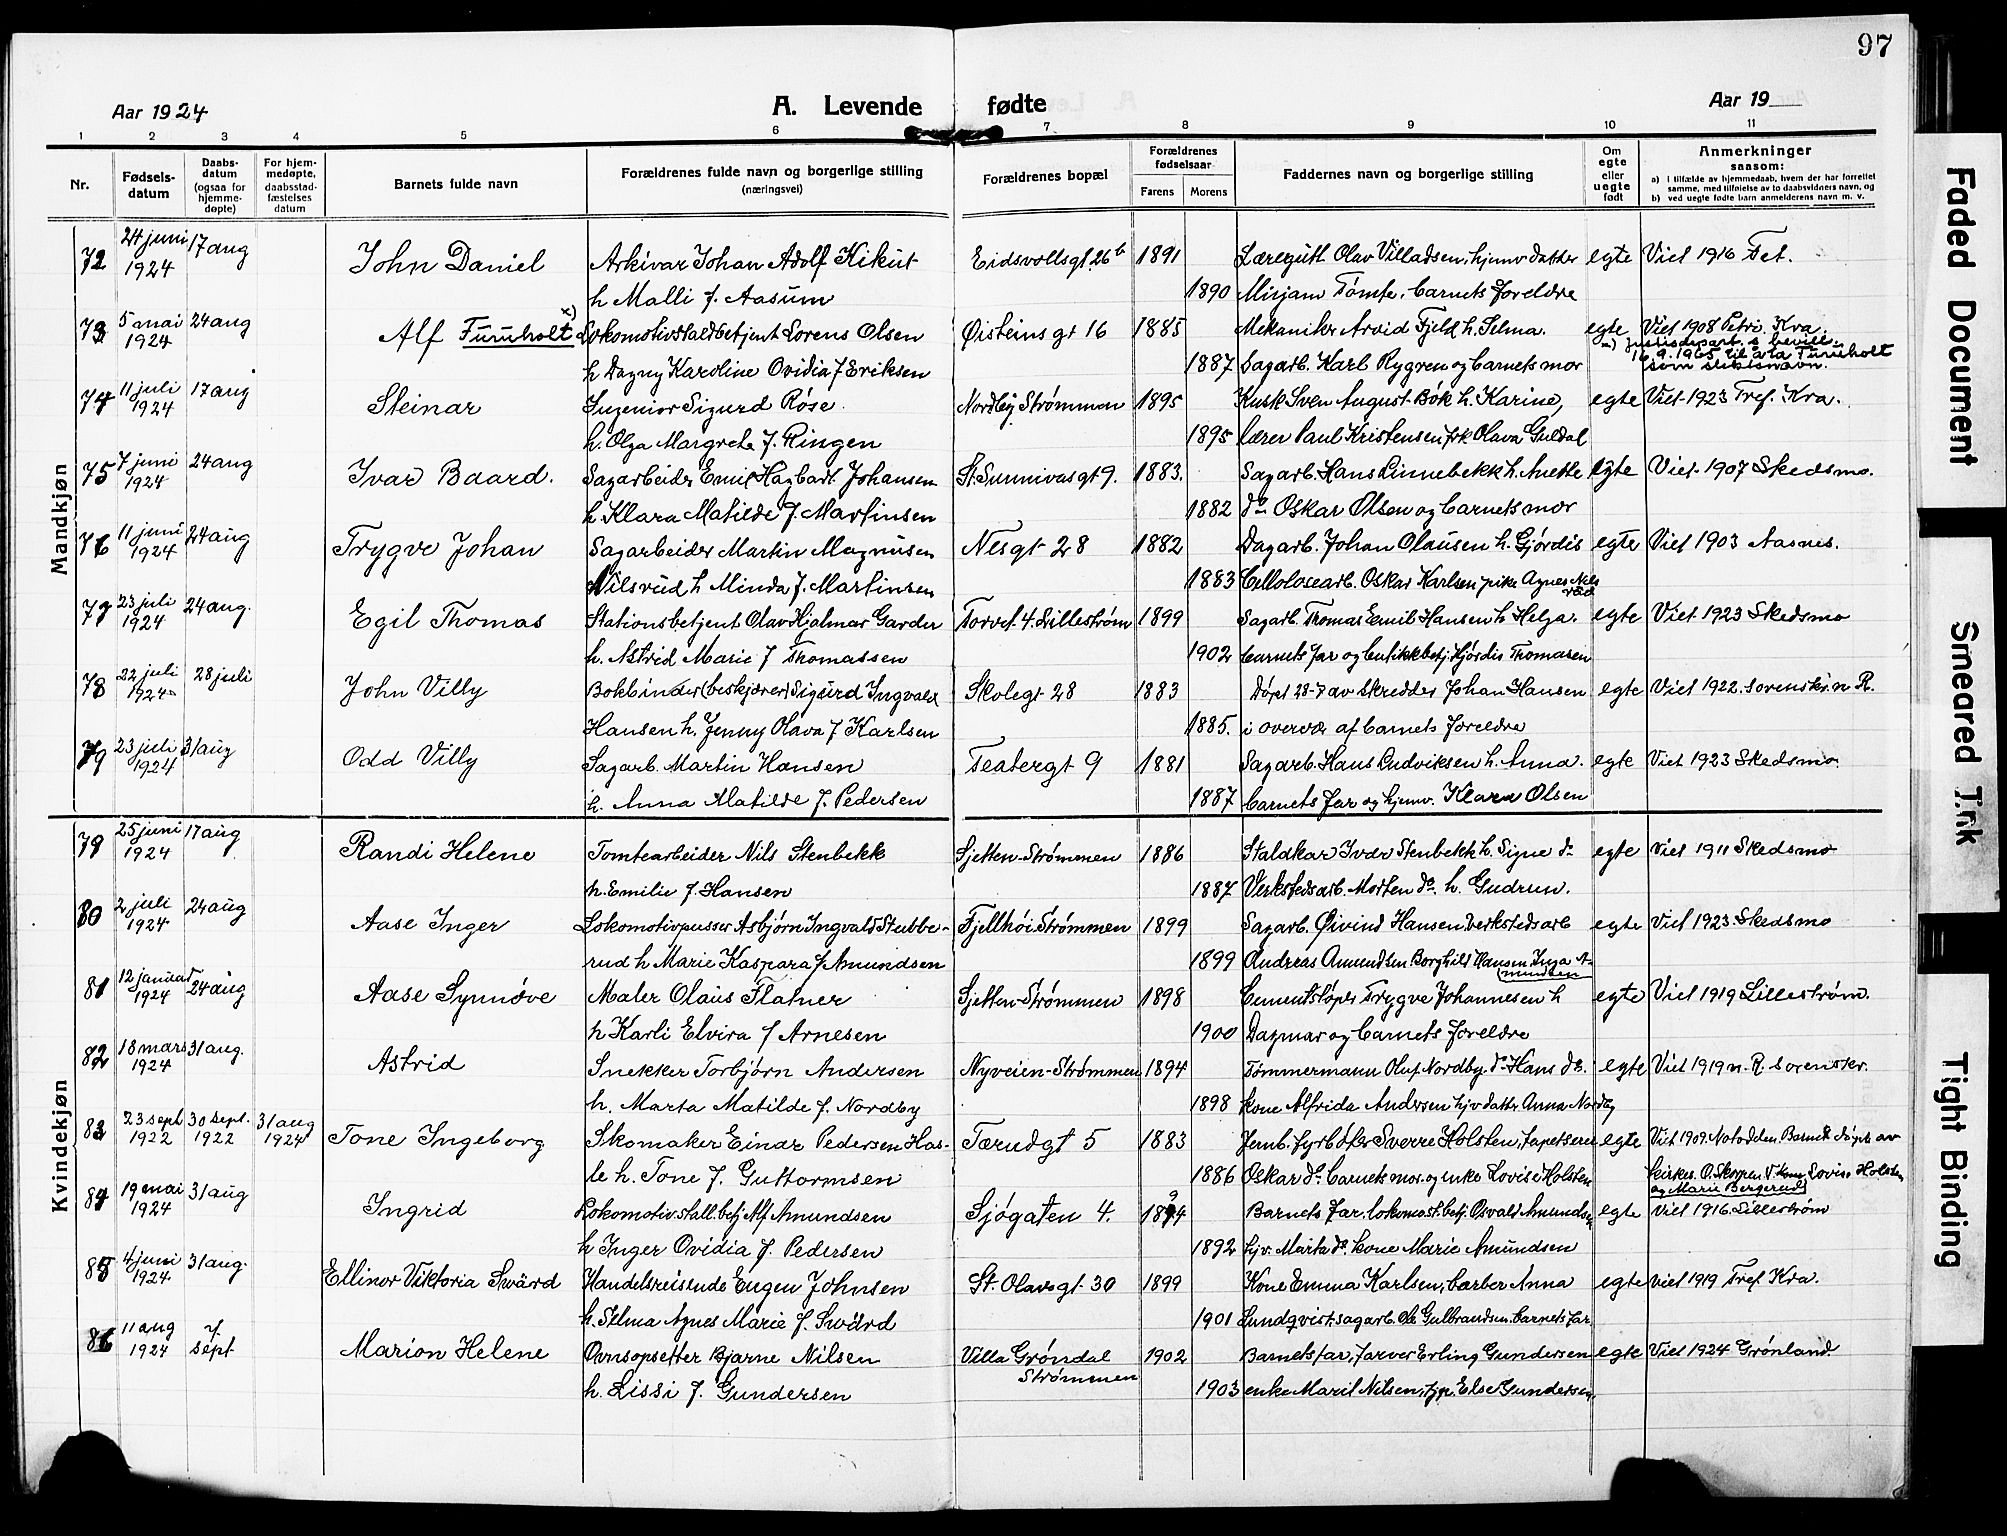 97
Aar 1924
A. Levende fødte
Aar 19
1 2 3 4 5 6 7 8 9 10 11
Nr.
Fødsels-datum
Daabs-datum (ogsaa for hjemme-døpte)
For hjem-medøpte, daabsstad-fæstelses datum
Barnets fulde navn
Forældrenes fulde navn og borgerlige stilling (næringsvei)
Forældrenes bopæl
Forældrenes fødselsaar
Farens Morens
Faddernes navn og borgerlige stilling
Om egte eller uegte født
Anmerkninger saasom:
a) i tilfælde av hjemmedaab, hvem der har forrettet samme, med tilføielse av to daabsvidners navn, og
b) ved uegte fødte barn anmelderens navn m. v.
Mandkjøn
72 24 juni 1924 17 aug John Daniel Arkivar Johan Adolf Kikut Eidsvollsgt. 26b 1891 Læregutt Olav Villadsen, hjemv. datter egte Viet 1916 Fet.
h Malli f. Aasum 1890 Mirjam Tømte, barnets foreldre
73 5 mai 1924 24 aug Alf Furuholt x) Lokomotivstaldbetjent Lorens Olsen Øisteins gt 16 1885 Mekaniker Arvid Fjeld h. Selma. egte Viet 1908 Petri. Kra.
h Dagny Karoline Ovidia f Eriksen 1887 Sagarb. Karl Rygren og barnets mor
x) Justisdepart.s bevill. 16.9.1965 til å ta Furuholt som slektsnavn.
74 11 juli 1924 17 aug Steinar Ingeniør Sigurd Røse. Nordby Strømmen 1895 Kusk Sven August Bøk h. Karine, egte Viet 1923 Tref. Kra.
h. Olga Margrete f. Ringen 1895 lærer Paul Kristensen frk Olava Guldal
75 7 juni 1924 24 aug Ivar Baard. Sagarbeider Emil Hagbart Johansen St. Sunnivas gt 9. 1883. Sagarb. Hans Linnebekk h. Anette egte Viet 1907 Skedsmo.
h. Klara Matilde f. Martinsen 1882 do Oskar Olsen og barnets mor
76 11 juni 1924 24 aug Trygve Johan Sagarbeider Martin Magnusen Nesgt 28 1882 Dagarb. Johan Olausen h. Gjørdis egte Viet 1903 Aasnes.
Nilsrud h Minda f. Martinsen 1883 Cellolosearb. Oskar Karlsen pike Agnes Nilsrud
77 23 juli 1924 24 aug. Egil Thomas Stationsbetjent Olav Hjalmar Garder Torvet 4. Lillestrøm 1899 Sagarb. Thomas Emil Hansen h Helga. egte Viet 1923 Skedsmo
h. Astrid Marie f Thomassen 1902 barnets far og butikkbetj. Hjørdis Thomasen
78 22 juli 1924 28 juli John Villy Bokbinder (beskjærer) Sigurd Ingvald Skolegt 28 1883 Døpt 28-7 av skredder Johan Hansen egte Viet 1922. sorenskr. n R.
Hansen h. Jenny Olava f Karlsen 1885. i overvær af barnets foreldre
79 23 juli 1924 31 aug Odd Villy Sagarb. Martin Hansen Teatergt 9 1881 Sagarb. Hans Ludviksen h. Anna. egte Viet 1923 Skedsmo.
h. Anna Matilde f. Pedersen 1887 barnets far og hjemv. Klara Olsen
Kvindekjøn
79 25 juni 1924 17 aug Randi Helene Tomtearbeider Nils Stenbekk Sjetten-Strømmen 1886 Staldkar Ivar Stenbekk h. Signe do egte Viet 1911 Skedsmo
h. Emilie f. Hansen 1887 Verkstedsarb. Morten do. h. Gudrun.
80 2 juli 1924 24 aug Aase Inger Lokomotivpusser Asbjørn Ingvald Stubbe- Fjellhøi Strømmen 1899 Sagarb. Øivind Hansen, verkstedsarb egte Viet 1923 Skedsmo
rud h Marie Kaspara f Amundsen 1899 Andreas Amundsen Borghild Hansen Inga A-mundsen
81 12 januar 1924 24 aug Aase Synnøve Maler Olaus Flatner Sjetten-Strømmen 1898 Cementstøper Trygve Johannesen h egte Viet 1919 Lillestrøm.
h Karli Elvira f Arnesen 1900 Dagmar og barnets foreldre
82 18 mars 1924 31 aug. Astrid Snekker Torbjørn Andersen Nyveien-Strømmen 1894 Tømmermann Oluf Nordby do Hans do. egte Viet 1919 n. R. sorenskr.
h. Marta Matilde f. Nordby 1898 kone Alfrida Andersen hjv datter Anna Nordby
83 23 sept 1922 30 sept. 1922 31 aug 1924 Tone Ingeborg Skomaker Einar Pedersen Has- Tærudgt 5 1883 Jernb. fyrbøter Sverre Holsten, tapetserer egte Viet 1909. Notodden. Barnet døpt av
le h. Tone f. Guttormsen 1886 Oskar do barnets mor og enke Lovise Holsten kirkes. O. Skogen. V. kone Lovise Holsten og Marie Bergerud
84 19 mai 1924 31 aug Ingrid Lokomotivstall.betj Alf Amundsen Sjøgaten 4. 1894 Barnets far, lokomost.betj. Osvald Amundsen egte Viet 1916 Lillestrøm
h Inger Ovidia f. Pedersen 1892 hjv. Marta do. kone Marie Amundsen
85 4 juni 1924 31 aug. Ellinor Viktoria Swärd Handelsreisende Eugen Johnsen St. Olavs gt 30 1899 Kone Emma Karlsen, barber Anna egte viet 1919 Tref. Kra.
h. Selma Agnes Marie f. Swärd 1901 Lundqvist. sagarb. Ole Gulbrandsen. barnets far.
86 11 aug 1924 7. sept Marion Helene Ovnsopsetter Bjarne Nilsen Villa Grøndal Strømmen 1902 Barnets far, farver Erling Gundersen egte Viet 1924 Grønland.
h. Lissi f. Gundersen 1903 enke Maril Nilsen, Else Gundersen.
Faded Document
Smeared Ink
Tight Binding